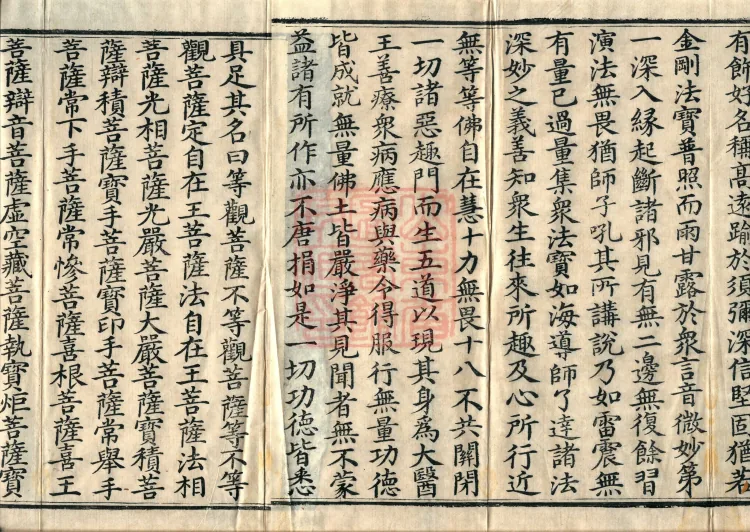 有飾好名稱高遠踰於須彌深信堅固猶若
金剛法寶普照而雨甘露於衆言音微妙第
一深入緣起斷諸邪見有無二邊無復餘習
演法無畏猶師子吼其所講說乃如雷震無
有量已過量集衆法寶如海導師了達諸法
深妙之義善知衆生往來所趣及心所行近
無等等佛自在慧十力無畏十八不共關閉
一切諸惡趣門而生五道以現其身爲大醫
王善療衆病應病與藥令得服行無量功德
皆成就無量佛土皆嚴淨其見聞者無不蒙
益諸有所作亦不唐捐如是一切功德皆悉
具足其名曰等觀菩薩不等觀菩薩等不等
觀菩薩定自在王菩薩法自在王菩薩法相
菩薩光相菩薩光嚴菩薩大嚴菩薩寶積菩
薩辯積菩薩寶手菩薩寶印手菩薩常舉手
菩薩常下手菩薩常慘菩薩喜根菩薩喜王
菩薩辯音菩薩虛空藏菩薩執寶炬菩薩寶